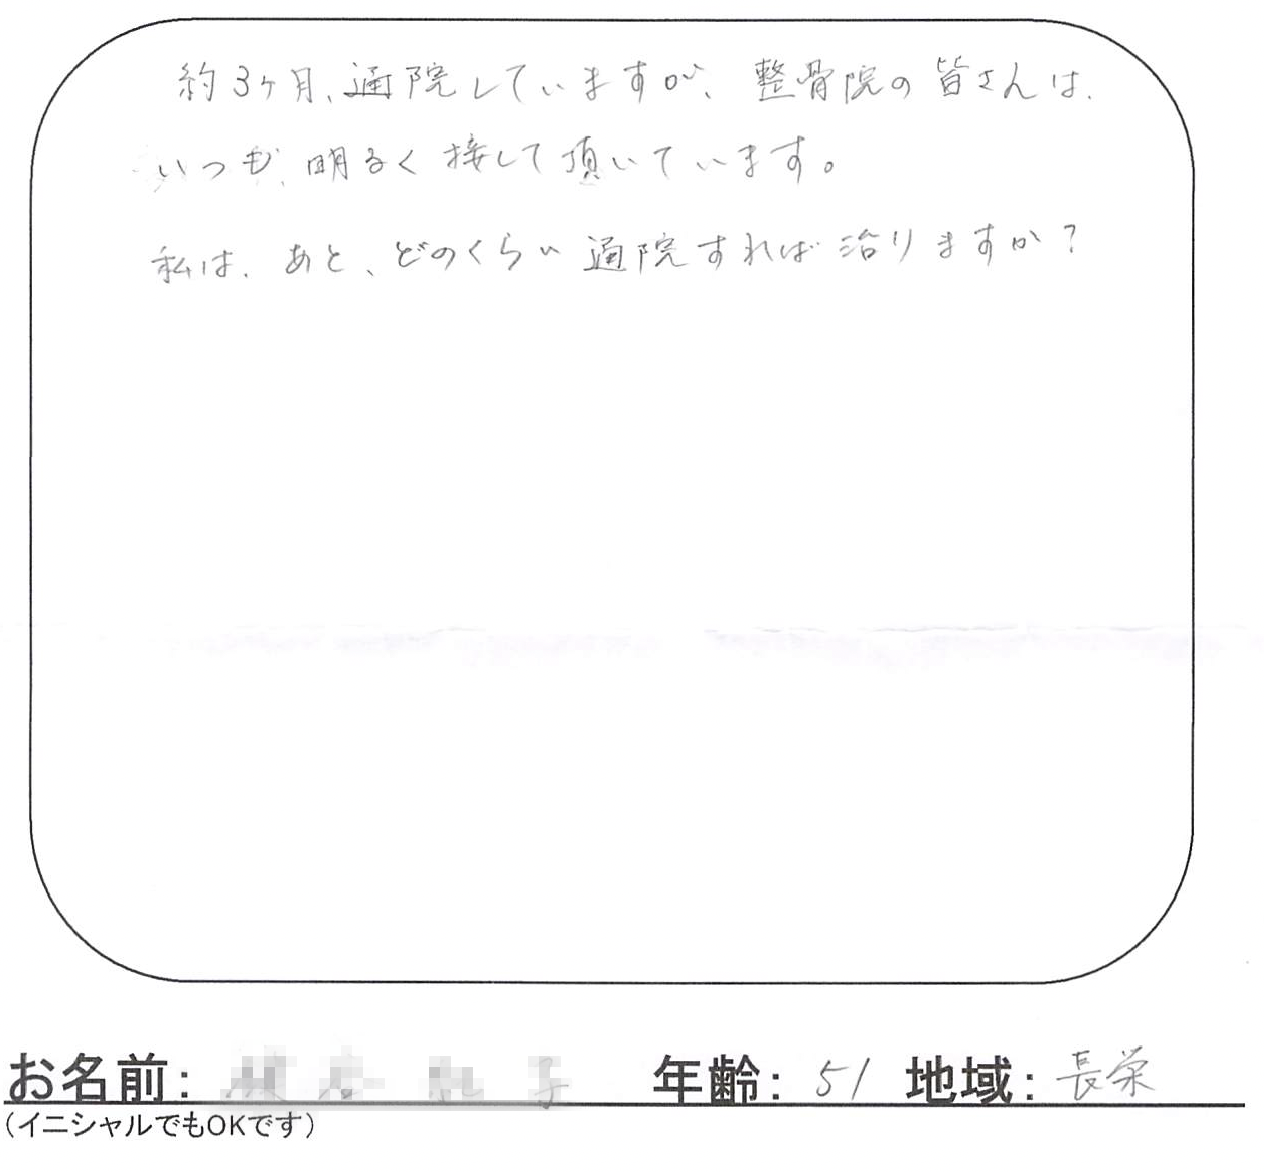 約3ヶ月、通院していますが、整骨院の皆さんは、
いつも、明るく接して頂いています。
私は、あと、どのくらい通院すれば治りますか？
お名前： 子 年齢：51 地域：長栄
（イニシャルでもOKです）